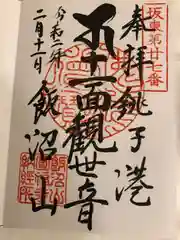 坂東第廿七番
奉拝
銚子港
十一面観世音
飯沼山
令和二年
二月十一日